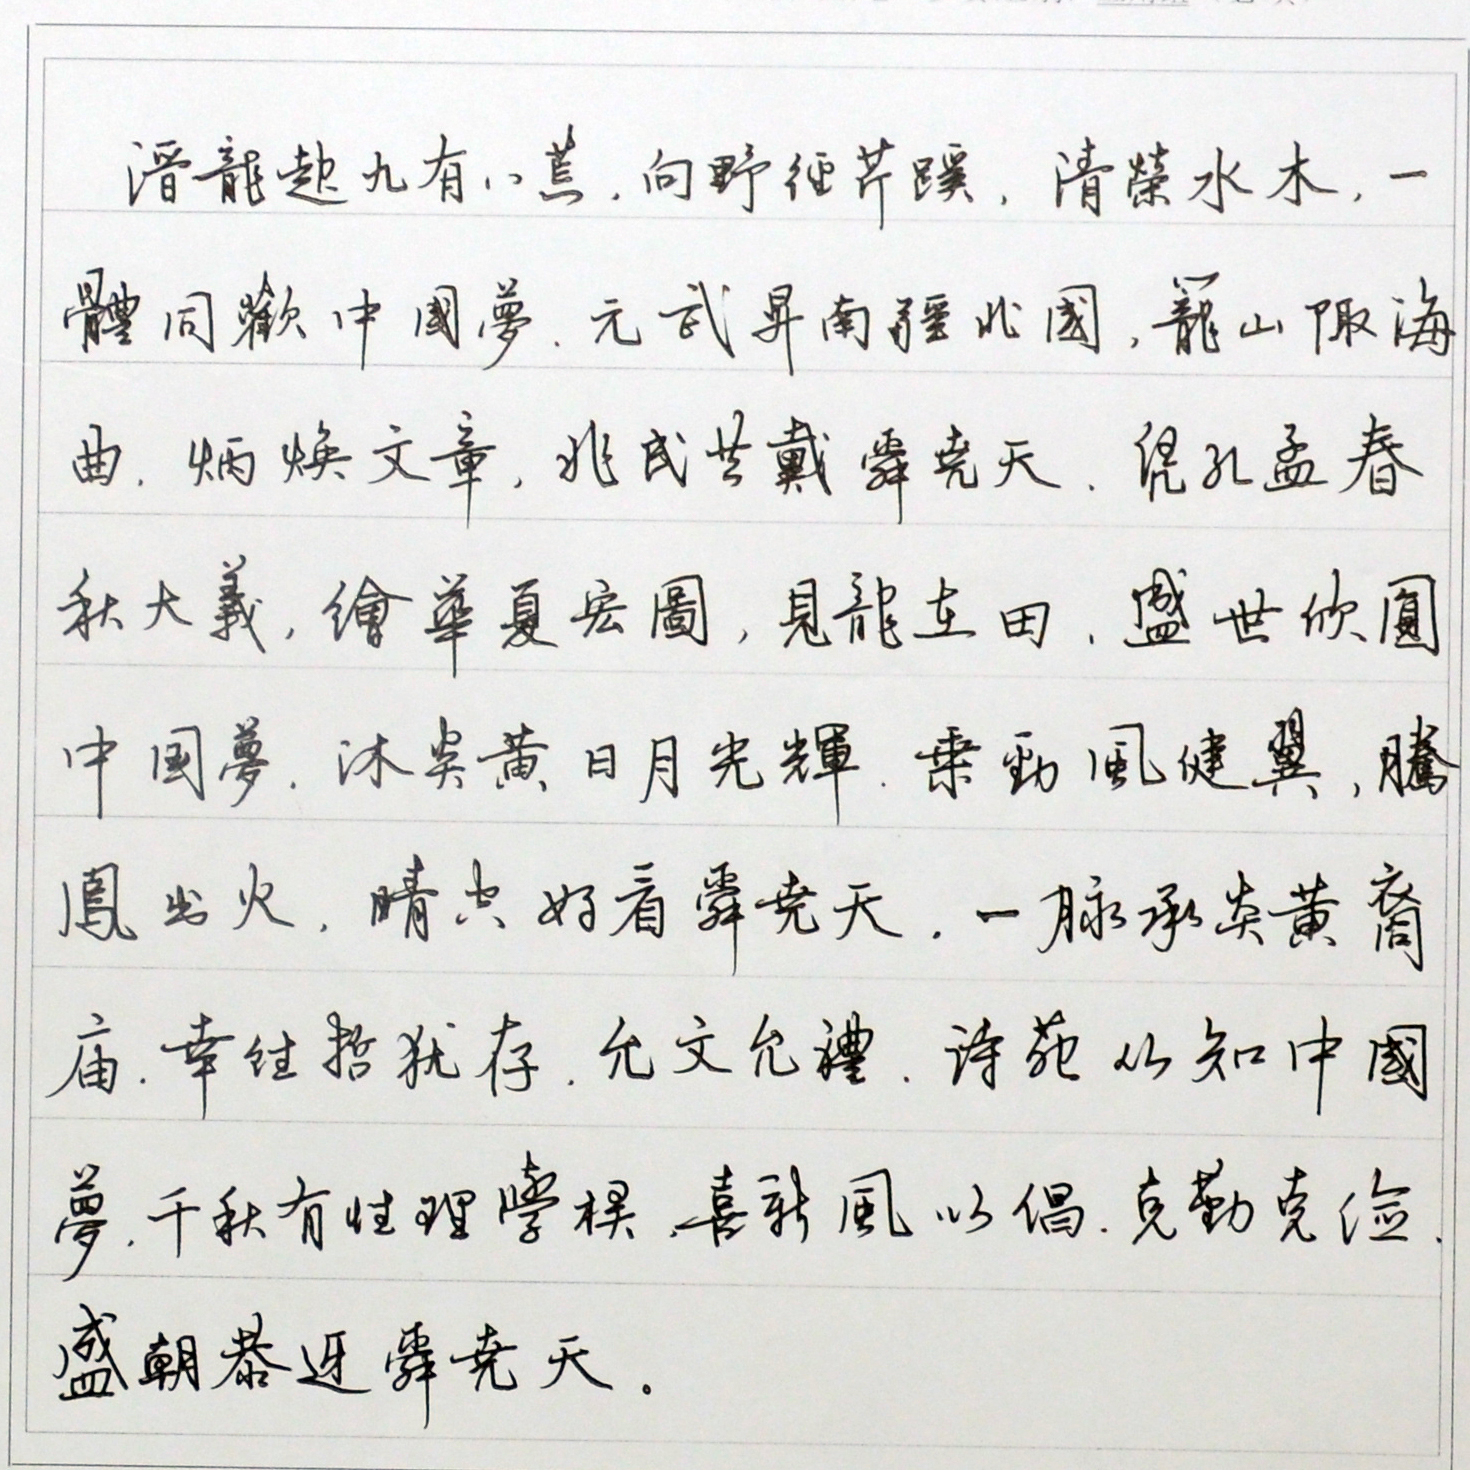 潛龍起九有八荒，向野徑芹蹊，清榮水木，一
體同歡中國夢．元武昇南疆北國，籠山陬海
曲．炳煥文章，兆民共戴舜堯天．凭孔孟春
秋大義，繪華夏宏圖，見龍在田．盛世欣圓
中国夢．沐炎黃日月光輝．乘勁風健翼，騰
鳳出火，晴空好看舜堯天．一脉承炎黃裔
庙．幸往哲犹存．允文允禮．诗苑以知中國
夢．千秋有性理學模．喜新風以倡．克勤克儉．
盛朝恭迓舜堯天。